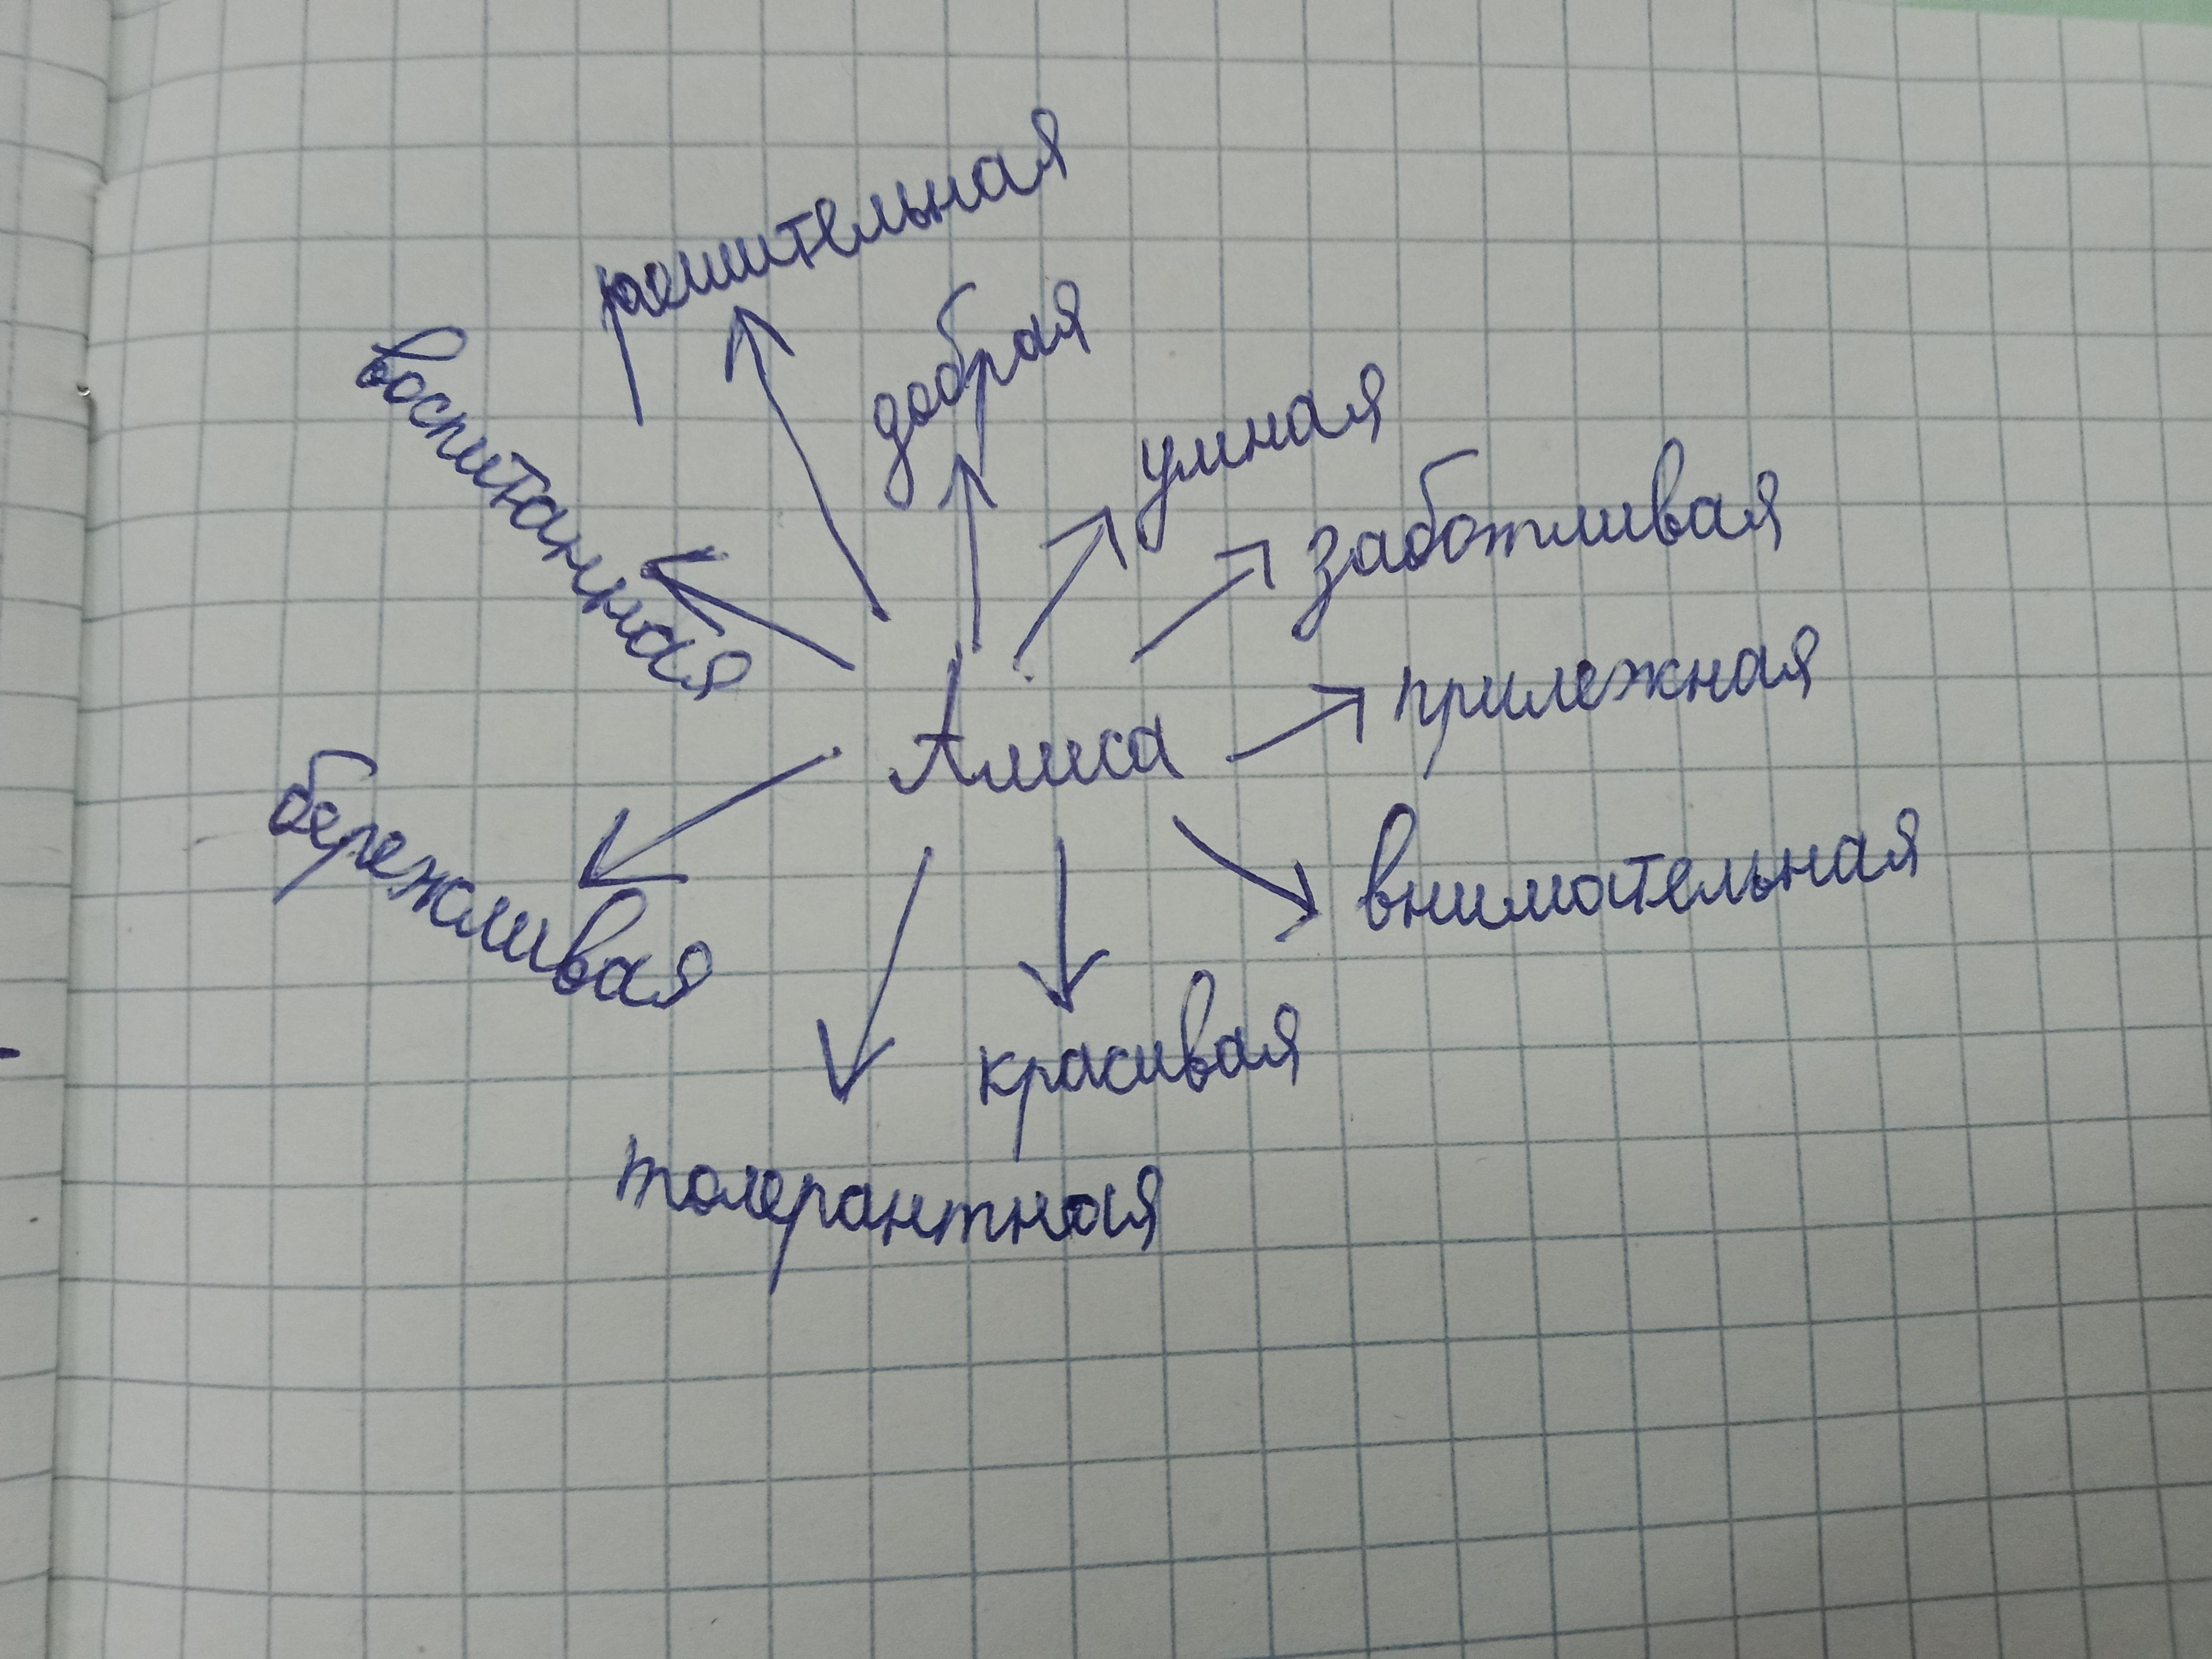 решительная
добрая
воспитанная
умная
заботливая
прилежная
Алиса
бережливая
внимательная
красивая
толерантная